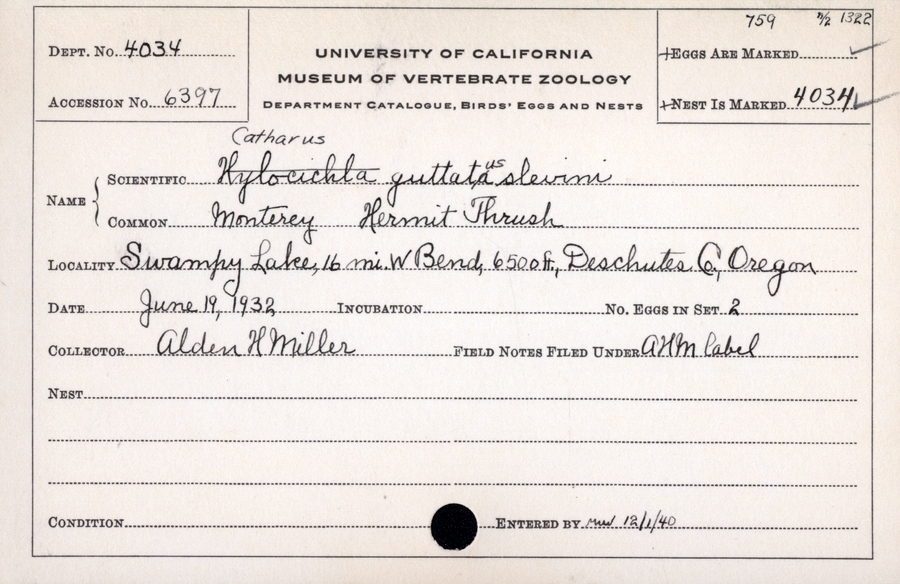 759 n/2 1322
DEPT. No. 4034
UNIVERSITY OF CALIFORNIA
+EGGS ARE MARKED
MUSEUM OF VERTEBRATE ZOOLOGY
ACCESSION No. 6397
DEPARTMENT CATALOGUE, BIRDS' EGGS AND NESTS
+NEST IS MARKED 4034
Catharus
NAME
SCIENTIFIC Hylocichla guttata us slevini
COMMON Monterey Hermit Thrush
LOCALITY Swampy Lake, 16 mi. W Bend, 6500 ft., Deschutes Co., Oregon
DATE June 19, 1932 INCUBATION No. EGGS IN SET 2
COLLECTOR Alden H Miller FIELD NOTES FILED UNDER AHM label
NEST
CONDITION ENTERED BY 12/1/40